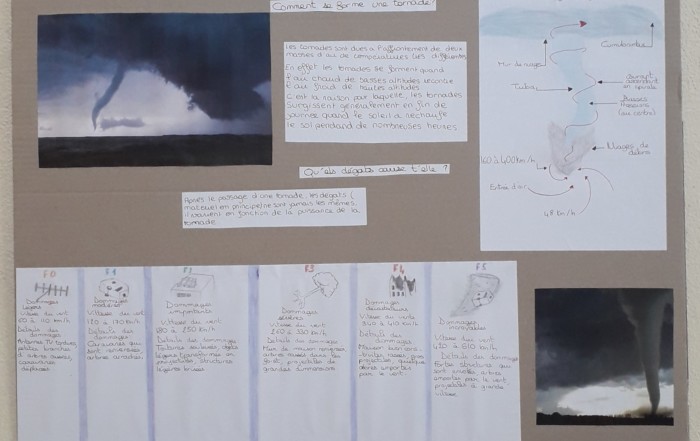 Comment se forme une tornade?
Les tornades sont dues à l'affrontement de deux
masses d'air de températures très différentes
En effet les tornades se forment quand
l'air chaud de basses altitudes rencontre
l'air froid de hautes altitudes
C'est la raison par laquelle les tornades
surgissent généralement en fin de
journée quand le soleil a réchauffé
le sol pendant de nombreuses heures
Cumulonimbus
Mur de nuages
Tuba
courant
ascendant en
spirale
Nuages de
débris
160 à 400km/h
Entrée d'air
48 km/h
Quels dégats cause t'elle ?
Après le passage d'une tornade, les dégats (
matériel) en principe ne sont jamais les mêmes,
en fonction de la puissance de la
tornade
F0
Dommages
légers
Vitesse du vent
60 à 110 km/h
Détails des
dommages
Antennes TV tordues,
petites branches
d'arbres cassées,
caravanes
déplacées
F1
Dommages
modérés
Vitesse du vent
120 à 170 km/h
Détails des
dommages
Caravanes qui
sont renversées,
arbres arrachés
F2
Dommages
importants
Vitesse du vent
180 à 250 km/h
Détails des dommages
Toitures soulevées, objets
légers transformés en
projectiles, structures
légères brisées
F3
Dommages
sévères
Vitesse du vent
260 à 330 km/h
Détails des dommages
Murs de maison
arbres
projectiles de
grandes dimensions
F4
Dommages
dévastateurs
Vitesse du vent
340 à 410 km/h
Détails du
dommage
Maison bien
projectiles, quelques
arbres emportés
par le vent.
F5
Dommages
incroyables
Vitesse du vent
420 à 510 km/h
Détails des dommages
Fortes structures qui
sont soufflées, arbres
emportés par le vent
projectiles à grande
vitesse